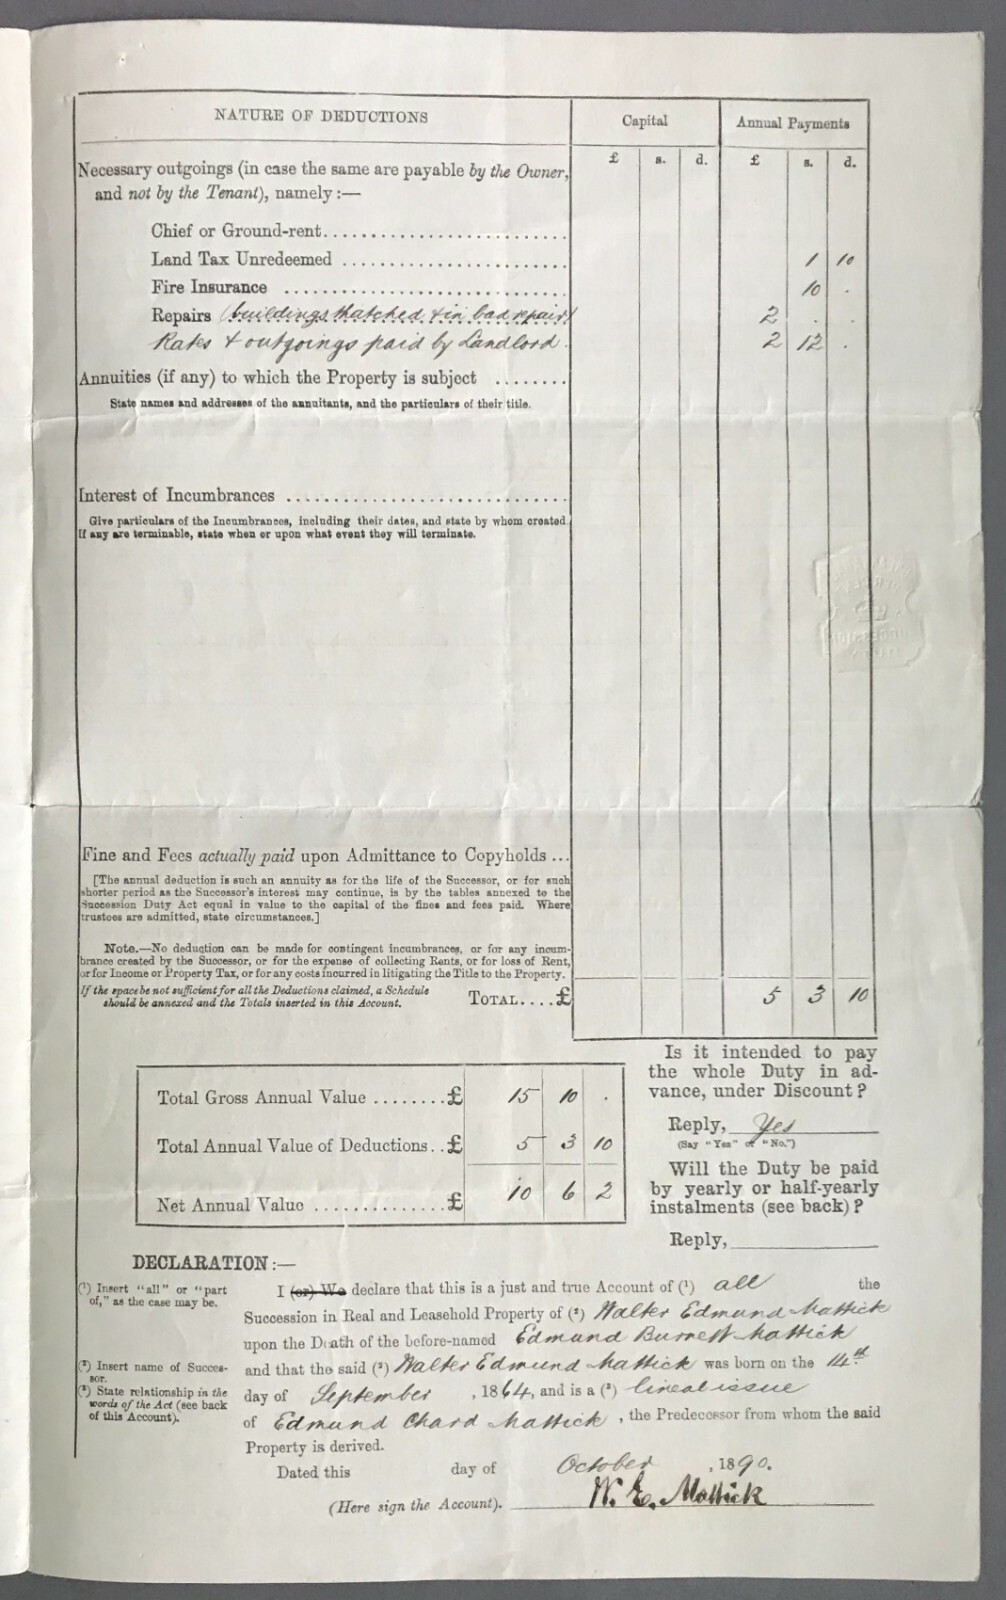 NATURE OF DEDUCTIONS Capital Annual Payments
£ s. d. £ s. d.
Necessary outgoings (in case the same are payable by the Owner,
and not by the Tenant), namely :—
Chief or Ground-rent..........................
Land Tax Unredeemed .......................... 1 10
Fire Insurance .......................... 10 .
Repairs (buildings thatched & in bad repair) 2 . .
Rates & outgoings paid by Landlord. 2 12 .
Annuities (if any) to which the Property is subject ........
State names and addresses of the annuitants, and the particulars of their title.
Interest of Incumbrances ..............................
Give particulars of the Incumbrances, including their dates, and state by whom created.
If any are terminable, state when or upon what event they will terminate.
Fine and Fees actually paid upon Admittance to Copyholds ...
[The annual deduction is such an annuity as for the life of the Successor, or for such
shorter period as the Successor's interest may continue, is by the tables annexed to the
Succession Duty Act equal in value to the capital of the fines and fees paid. Where
trustees are admitted, state circumstances.]
Note.—No deduction can be made for contingent incumbrances, or for any incum-
brance created by the Successor, or for the expense of collecting Rents, or for loss of Rent,
or for Income or Property Tax, or for any costs incurred in litigating the Title to the Property.
If the space be not sufficient for all the Deductions claimed, a Schedule
should be annexed and the Totals inserted in this Account.
TOTAL....£ 5 3 10
Total Gross Annual Value ........£ 15 10 .
Total Annual Value of Deductions..£ 5 3 10
Net Annual Value ...............£ 10 6 2
Is it intended to pay
the whole Duty in ad-
vance, under Discount ?
Reply, Yes
(Say "Yes" or "No.")
Will the Duty be paid
by yearly or half-yearly
instalments (see back) ?
Reply,
DECLARATION :—
(¹) Insert "all" or "part
of," as the case may be.
(²) Insert name of Succes-
sor.
(³) State relationship in the
words of the Act (see back
of this Account).
I (or) We declare that this is a just and true Account of (¹) all the
Succession in Real and Leasehold Property of (²) Walter Edmund Mattick
upon the Death of the before-named Edmund Burnett Mattick
and that the said (²) Walter Edmund Mattick was born on the 14th
day of September, 1864, and is a (³) lineal issue
of Edmund Chard Mattick, the Predecessor from whom the said
Property is derived.
Dated this day of October, 1890.
(Here sign the Account). W. E. Mattick